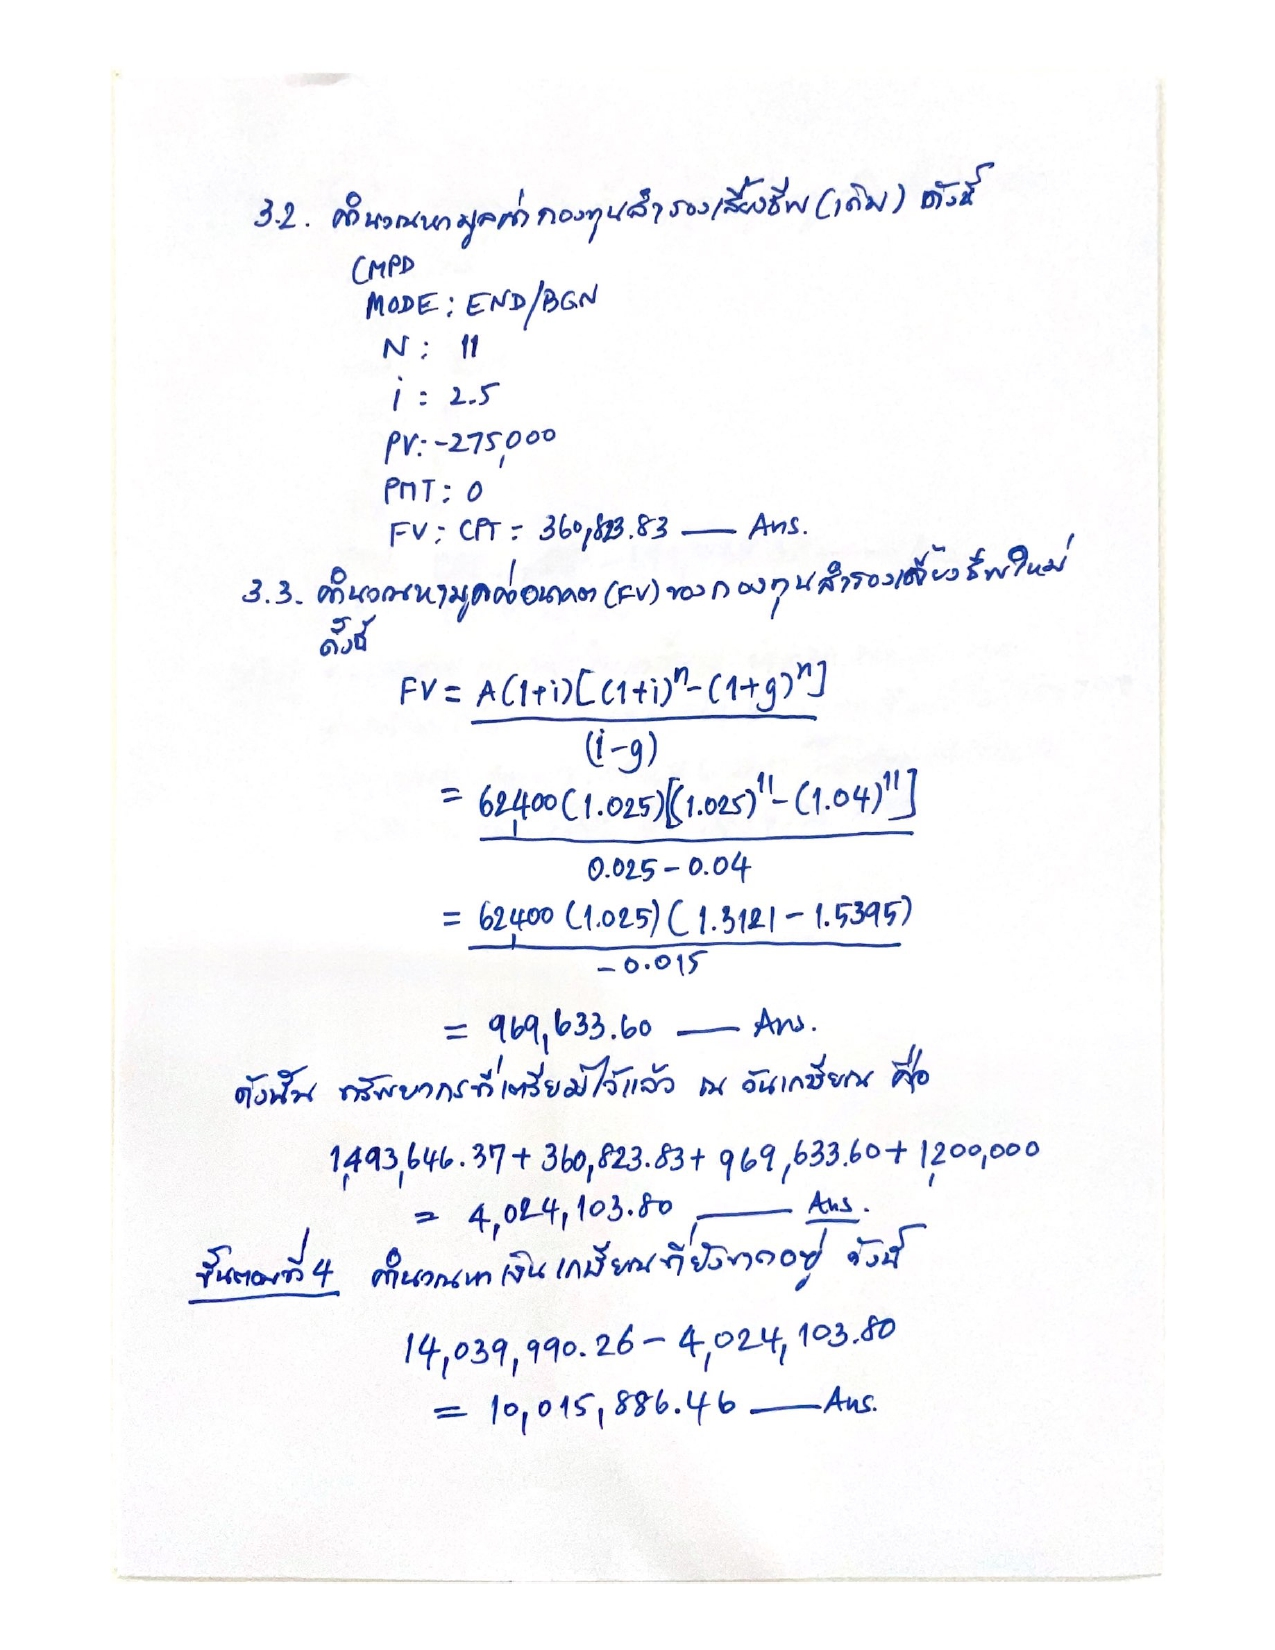 3.2. คำนวณหามูลค่ากองทุนสำรองเลี้ยงชีพ (เดิม) ดังนี้
CMPD
MODE : END/BGN
N : 11
i : 2.5
PV: -275,000
PMT : 0
FV : CPT = 360,823.83 — Ans.
3.3. คำนวณหามูลค่าอนาคต (FV) ของกองทุนสำรองเลี้ยงชีพใหม่
ดังนี้
FV = A(1+i)[(1+i)ⁿ-(1+g)ⁿ]
(i-g)
= 62,400(1.025)[(1.025)¹¹-(1.04)¹¹]
0.025-0.04
= 62,400 (1.025) (1.3121-1.5395)
-0.015
= 969,633.60 — Ans.
ดังนั้น ทรัพยากรที่เตรียมไว้แล้ว ณ วันเกษียณ คือ
1,493,646.37+360,823.83+969,633.60+1,200,000
= 4,024,103.80 — Ans.
ขั้นตอนที่ 4 คำนวณหาเงินเกษียณที่ยังขาดอยู่ ดังนี้
14,039,990.26-4,024,103.80
= 10,015,886.46 — Ans.